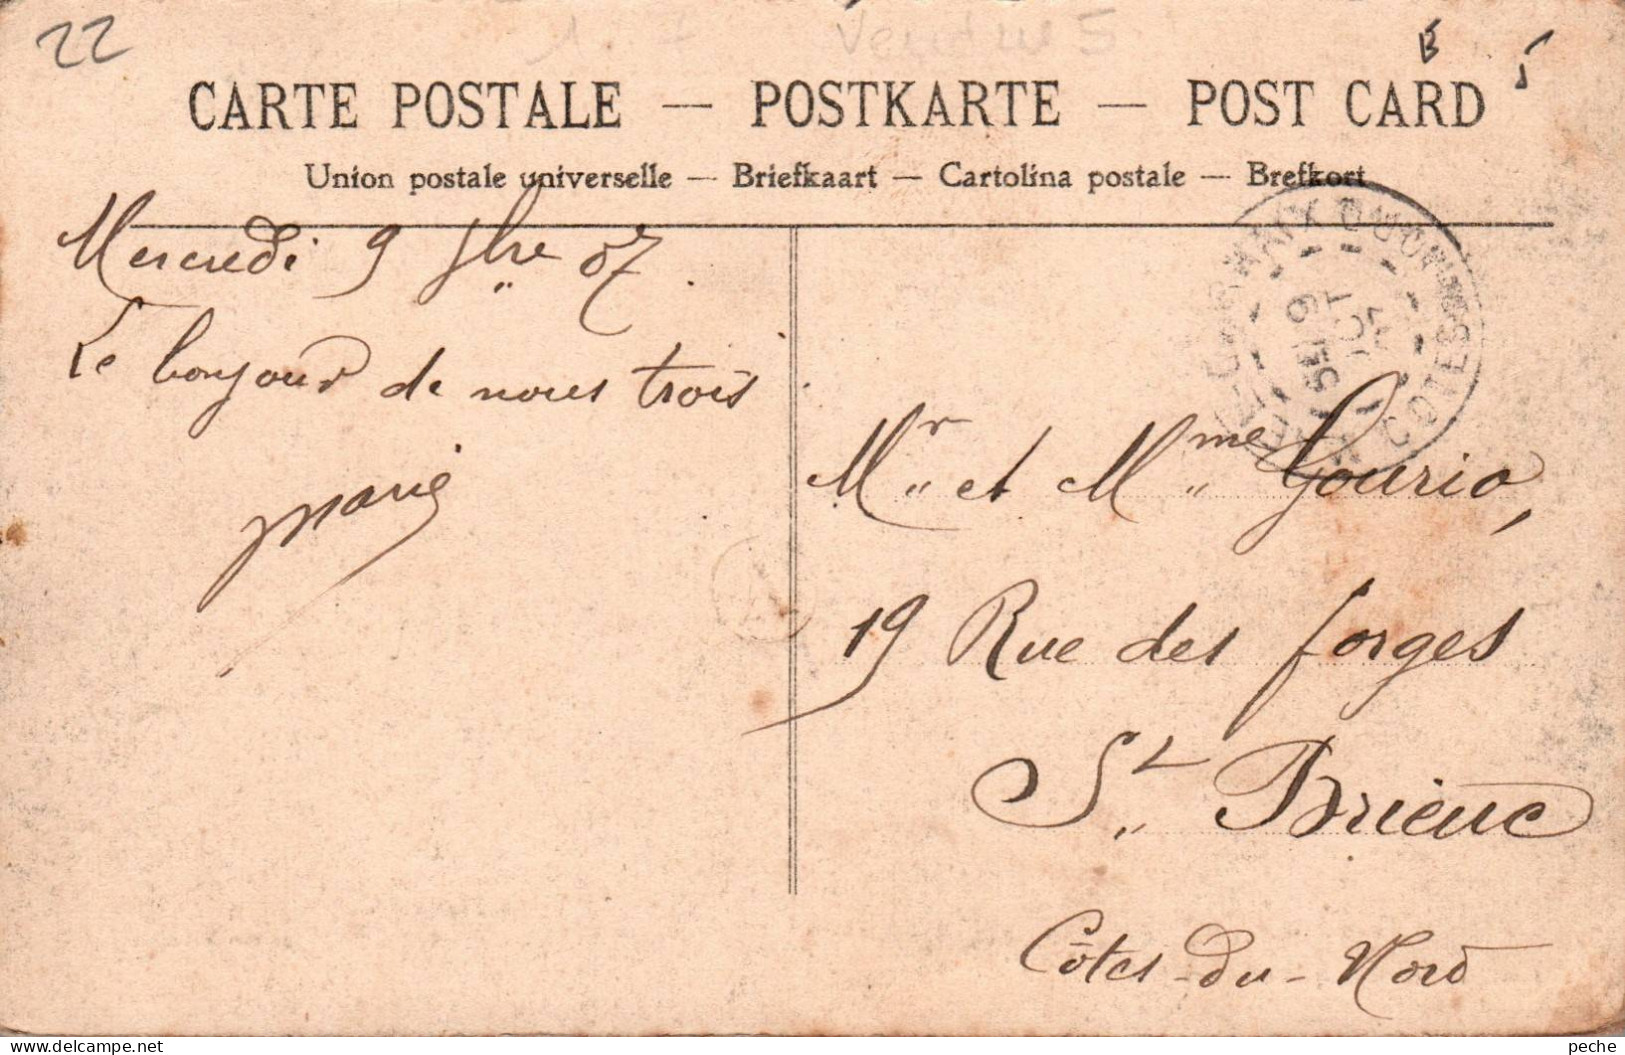 22
CARTE POSTALE — POSTKARTE — POST CARD
Union postale universelle — Briefkaart — Cartolina postale — Brefkort
Mercredi 9 8bre 07.
Le bonjour de nous trois
Marie
Mr et Mme Gourio,
19 Rue des forges
St Brieuc
Côtes-du-Nord
peche